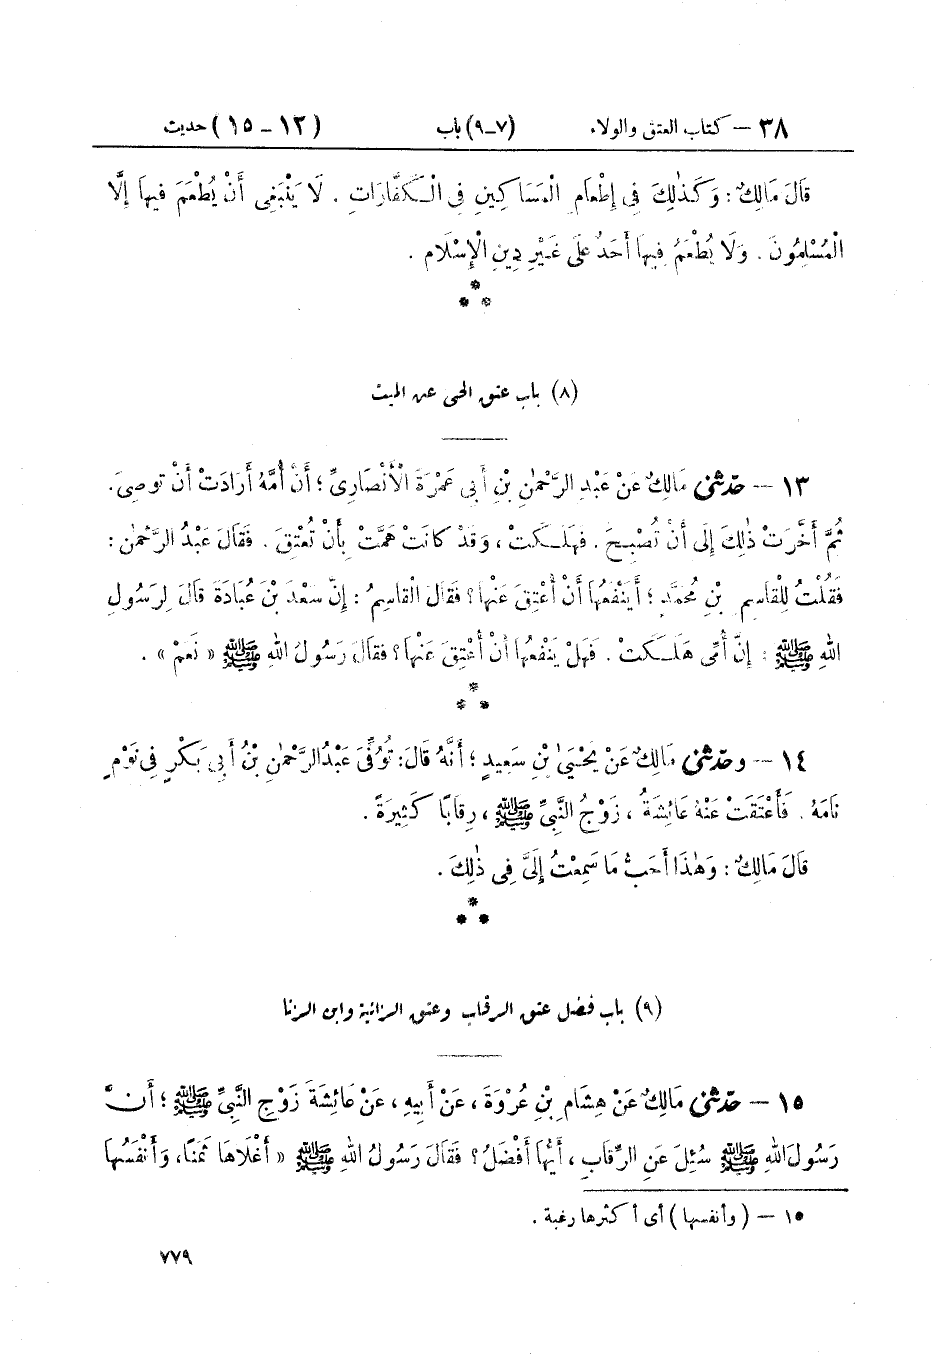 ٣٨ – كتاب العتق والولاء (٧-٩) باب (١٢ – ١٥) حديث
قَالَ مَالِكٌ : وَكَذٰلِكَ فِى إِطْعَامِ الْمَسَاكِينِ فِى الْكَفَّارَاتِ . لَا يَنْبَغِى أَنْ يُطْعَمَ فِيهَا إِلَّا
الْمُسْلِمُونَ . وَلَا يُطْعَمُ فِيهَا أَحَدٌ عَلَى غَيْرِ دِينِ الْإِسْلَامِ .
(٨) باب عتق الحى عن الميت
١٣ – حَدَّثَنِى مَالِكٌ عَنْ عَبْدِ الرَّحْمٰنِ بْنِ أَبِى عَمْرَةَ الْأَنْصَارِىِّ ؛ أَنَّ أُمَّهُ أَرَادَتْ أَنْ تُوصِىَ .
ثُمَّ أَخَّرَتْ ذٰلِكَ إِلَى أَنْ تُصْبِحَ . فَهَلَكَتْ ، وَقَدْ كَانَتْ هَمَّتْ بِأَنْ تُعْتِقَ . فَقَالَ عَبْدُ الرَّحْمٰنِ :
فَقُلْتُ لِلْقَاسِمِ بْنِ مُحَمَّدٍ ؛ أَيَنْفَعُهَا أَنْ أُعْتِقَ عَنْهَا ؟ فَقَالَ الْقَاسِمُ : إِنَّ سَعْدَ بْنَ عُبَادَةَ قَالَ لِرَسُولِ
اللهِ ﷺ : إِنَّ أُمِّى هَلَكَتْ . فَهَلْ يَنْفَعُهَا أَنْ أُعْتِقَ عَنْهَا ؟ فَقَالَ رَسُولَ اللهِ ﷺ « نَعَمْ » .
١٤ – وحَدَّثَنِى مَالِكٌ عَنْ يَحْيَىٰ بْنِ سَعِيدٍ ؛ أَنَّهُ قَالَ : تُوُفِّىَ عَبْدُ الرَّحْمٰنِ بْنُ أَبِى بَكْرٍ فِى نَوْمٍ
نَامَهُ . فَأَعْتَقَتْ عَنْهُ عَائِشَةُ ، زَوْجُ النَّبِىِّ ﷺ ، رِقَابًا كَثِيرَةً .
قَالَ مَالِكٌ : وَهٰذَا أَحَبُّ مَا سَمِعْتُ إِلَىَّ فِى ذٰلِكَ .
(٩) باب فضل عتق الرقاب وعتق الزانية وابن الزنا
١٥ – حَدَّثَنِى مَالِكٌ عَنْ هِشَامِ بْنِ عُرْوَةَ ، عَنْ أَبِيهِ ، عَنْ عَائِشَةَ زَوْجِ النَّبِىِّ ﷺ ؛ أَنَّ
رَسُولَ اللهِ ﷺ سُئِلَ عَنِ الرِّقَابِ ، أَيُّهَا أَفْضَلُ ؟ فَقَالَ رَسُولُ اللهِ ﷺ « أَغْلَاهَا ثَمَنًا ، وَأَنْفَسُهَا
١٥ – ( وأنفسها ) أى أكثرها رغبة .
٧٧٩